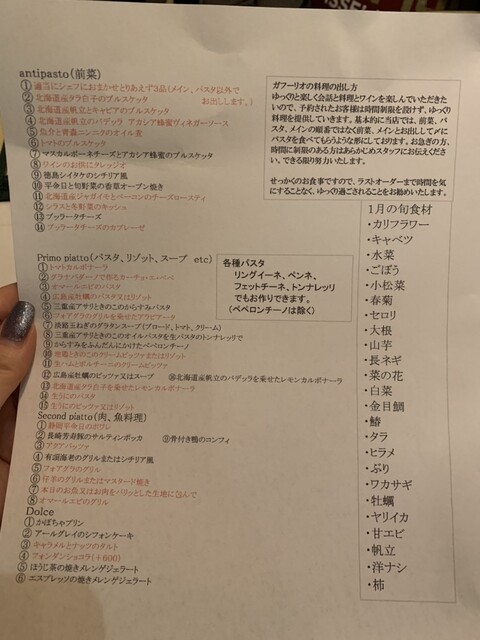 antipasto(前菜)
① 適当にシェフにおまかせとりあえず3品(メイン、パスタ以外で
お出しします。)
② 北海道産タラ白子のブルスケッタ
③ 北海道産帆立とキャビアのブルスケッタ
④ 北海道産帆立のパデッラ アカシア蜂蜜ヴィネガーソース
⑤ 魚介と青森ニンニクのオイル煮
⑥ トマトのブルスケッタ
⑦ マスカルポーネチーズとアカシア蜂蜜のブルスケッタ
⑧ ワインのお供にタレッジオ
⑨ 徳島シイタケのシチリア風
⑩ 平余日と旬野菜の香草オーブン焼き
⑪ 北海道産ジャガイモとベーコンのチーズロースティ
⑫ シラスと冬野菜のキッシュ
⑬ ブッラータチーズ
⑭ ブッラータチーズのカプレーゼ
ガフーリオの料理の出し方
ゆっくりと楽しく会話と料理とワインを楽しんでいただきた
いので、予約されたお客様は時間制限を設けず、ゆっくり
料理を提供していきます。基本的に当店では、前菜、パ
スタ、メインの順番ではなく前菜、メインとお出しして〆に
パスタを食べてもらうような形にしております。お急ぎの方、
時間に制限のある方はあらかじめスタッフにお伝えくださ
い。できる限り努力いたします。
せっかくのお食事ですので、ラストオーダーまで時間を気
にすることなく、ゆっくり過ごされることをお勧めいたします。
Primo piatto(パスタ、リゾット、スープ etc)
① トマトカルボナーラ
② グラナパダーノで作るカーチョ・エ・ペペ
③ オマールエビのパスタ
④ 広島産牡蠣のパスタ又はリゾット
⑤ 三重産アサリときのこのからすみパスタ
⑥ フォアグラのグリルを乗せたアラビアータ
⑦ 淡路玉ねぎのグラタンスープ(ブロード、トマト、クリーム)
⑧ 三重産アサリときのこのオイルパスタを生パスタのトンナレッリで
⑨ からすみをふんだんにかけたペペロンチーノ
⑩ 地鶏ときのこのクリームピッツァまたはリゾット
⑪ 生ハムとポルチーニのクリームピッツァ
⑫ 広島産牡蠣のピッツァ又はスープ ⑯北海道産帆立のパデッラを乗せたレモンカルボナーラ
⑬ 北海道産タラ白子を乗せたレモンカルボナーラ
⑭ 生うにのパスタ
⑮ 生うにのピッツァ又はリゾット
各種パスタ
リングイーネ、ペンネ、
フェットチーネ、トンナレッリ
でもお作りできます。
(ペペロンチーノは除く)
Second piatto(肉、魚料理)
① 静岡平余日のポワレ
② 長崎芳寿豚のサルティンボッカ ⑨骨付き鴨のコンフィ
③ アクアパッツァ
④ 有頭海老のグリルまたはシチリア風
⑤ フォアグラのグリル
⑥ 仔羊のグリルまたはマスタード焼き
⑦ 本日のお魚又はお肉をパリッとした生地に包んで
⑧ オマールエビのグリル
Dolce
① かぼちゃプリン
② アールグレイのシフォンケーキ
③ キャラメルとナッツのタルト
④ フォンダンショコラ(+600)
⑤ ほうじ茶の焼きメレンゲジェラート
⑥ エスプレッソの焼きメレンゲジェラート
1月の旬食材
・カリフラワー
・キャベツ
・水菜
・ごぼう
・小松菜
・春菊
・セロリ
・大根
・山芋
・長ネギ
・菜の花
・白菜
・金目鯛
・鰆
・タラ
・ヒラメ
・ぶり
・ワカサギ
・牡蠣
・ヤリイカ
・甘エビ
・帆立
・洋ナシ
・柿